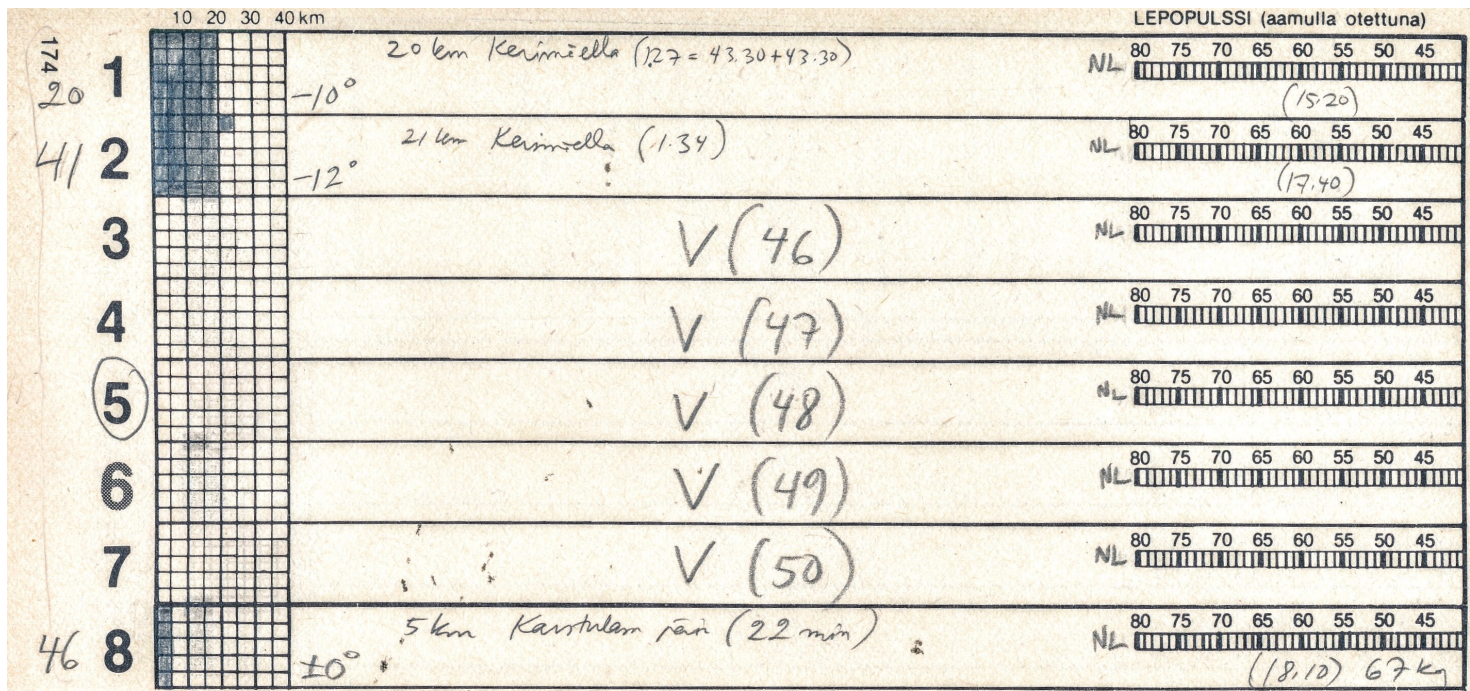 10 20 30 40 km
LEPOPULSSI (aamulla otettuna)
174
1
20 km Kerimiellä (1.27 = 43.30+43.30)
NL 80 75 70 65 60 55 50 45
20
-10°
(15.20)
2
21 km Kerimiellä (1.34)
NL 80 75 70 65 60 55 50 45
41
-12°
(17.40)
3
V (46)
NL 80 75 70 65 60 55 50 45
4
V (47)
NL 80 75 70 65 60 55 50 45
5
V (48)
NL 80 75 70 65 60 55 50 45
6
V (49)
NL 80 75 70 65 60 55 50 45
7
V (50)
NL 80 75 70 65 60 55 50 45
8
5 km (22 min)
NL 80 75 70 65 60 55 50 45
46
±0°
(18.10) 67 kg